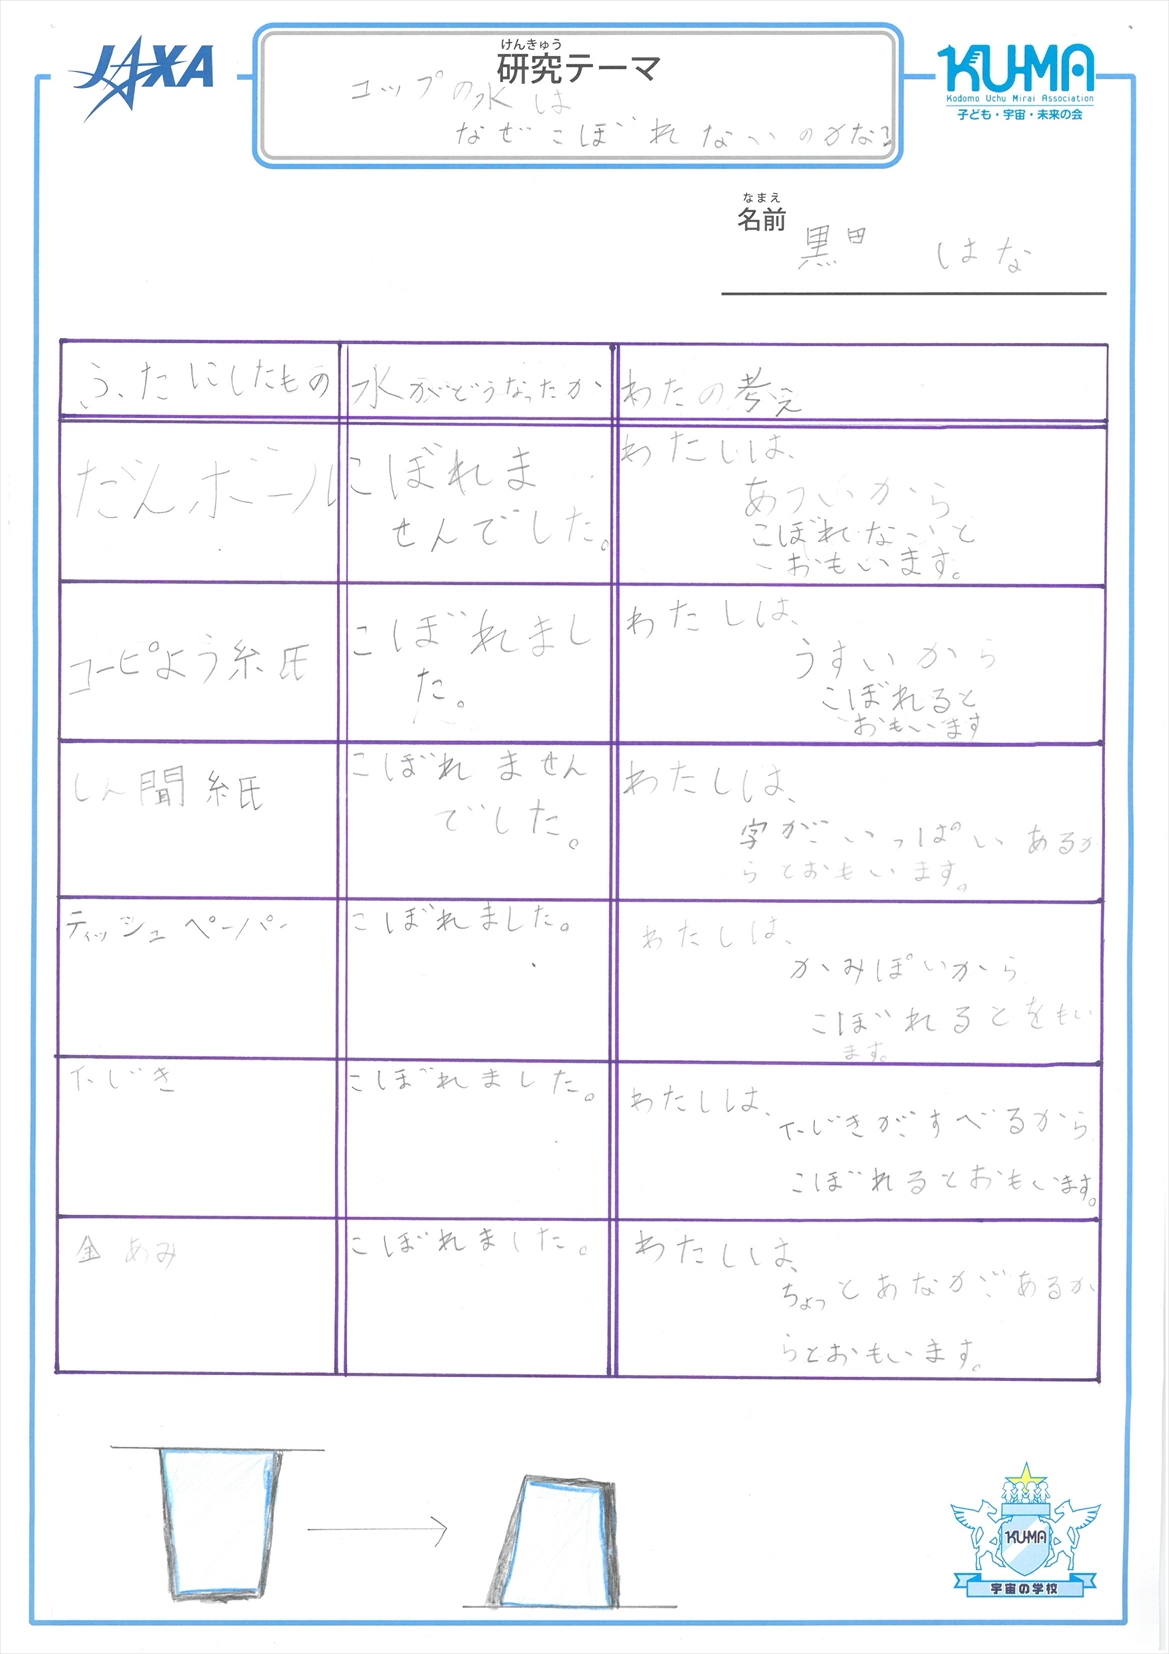 JAXA
けんきゅう
研究テーマ
コップの水は
なぜこぼれないのかな?
KU-MA
Kodomo Uchu Mirai Association
子ども・宇宙・未来の会
なまえ
名前
黒田 はな
ふたにしたもの
水がどうなったか
わたの考え
だんボール
こぼれま
せんでした。
わたしは、
あついから
こぼれないと
おもいます。
コーピよう紙
こぼれまし
た。
わたしは、
うすいから
こぼれると
おもいます
しん聞紙
こぼれません
でした。
わたしは、
字がいっぱいあるか
らとおもいます。
ティッシュペーパー
こぼれました。
わたしは、
かみぽいから
こぼれるとをもい
ます。
下じき
こぼれました。
わたしは、
下じきがすべるから
こぼれるとおもいます。
金あみ
こぼれました。
わたしは、
ちょっとあながあるか
らとおもいます。
KU-MA
宇宙の学校